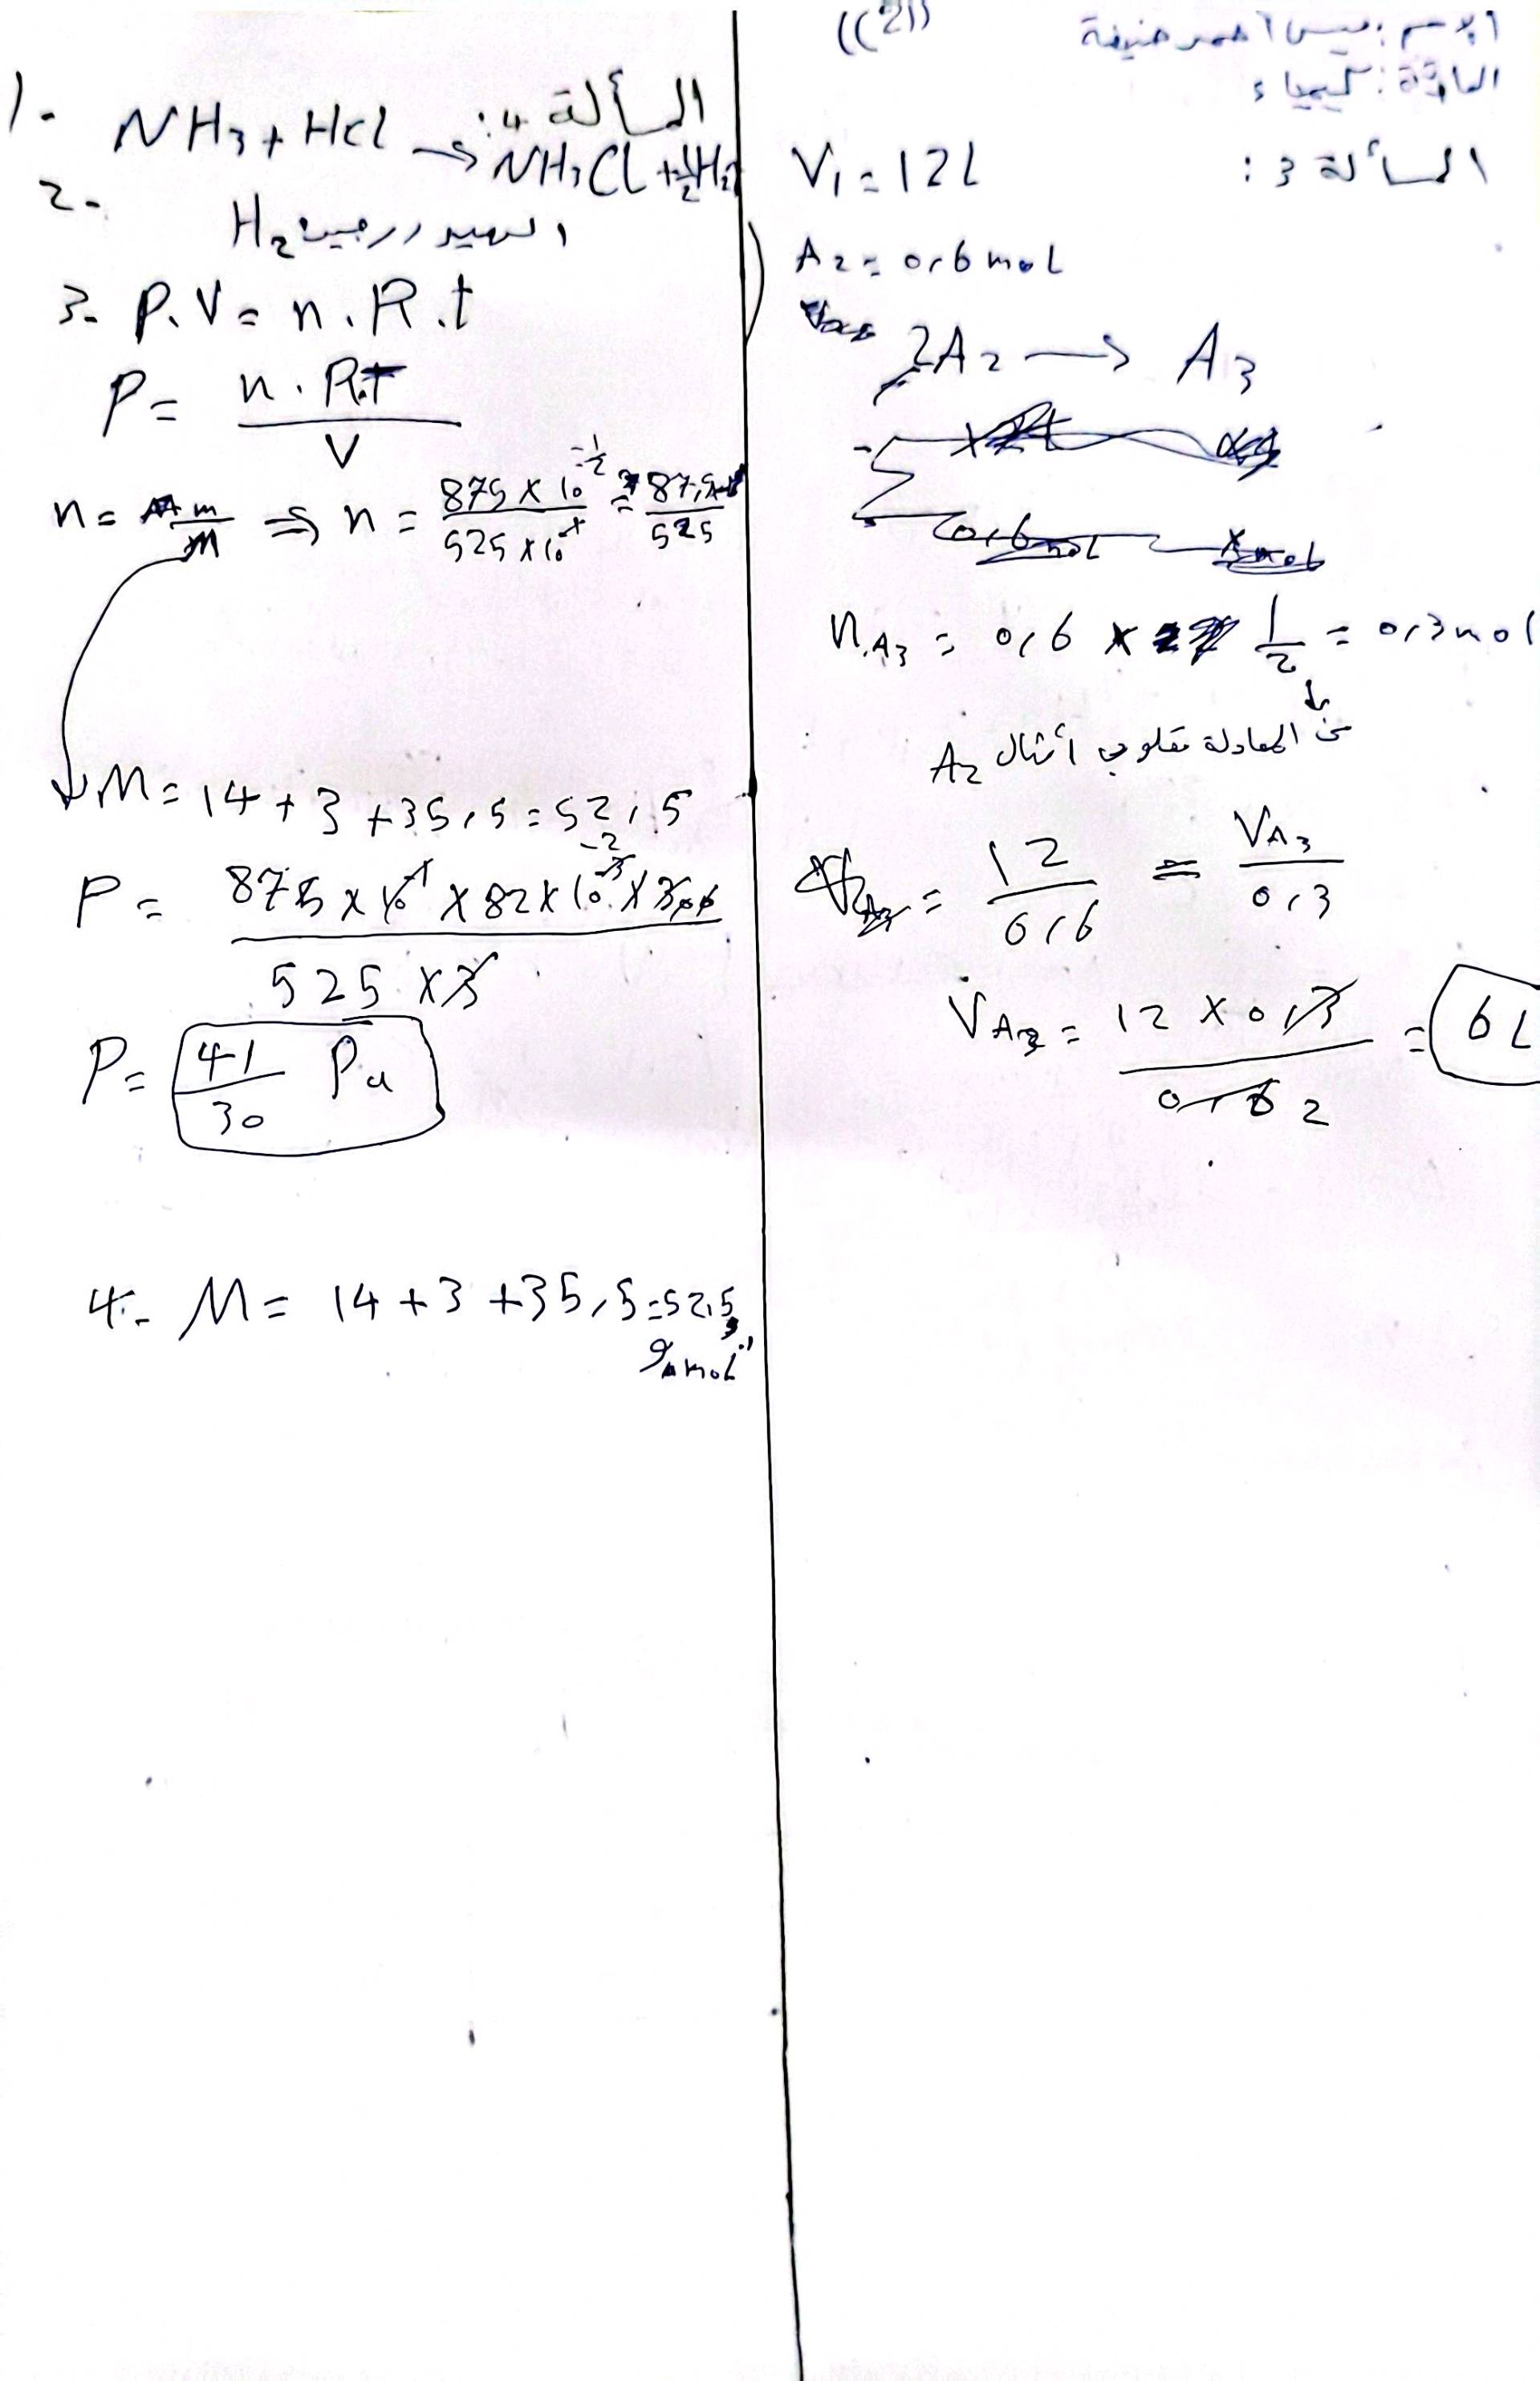 ((21))
الاسم: ميس احمد حنيفة
المادة: كيمياء
المسألة 3:
V₁ = 12L
A₂ = 0,6 mol
2A₂ → A₃
0,6 mol x mol
n_A₃ = 0,6 × 1/2 = 0,3 mol
من المعادلة مقلوب أمثال A₂
= 12/0,6 = V_A₃/0,3
V_A₃ = 12 × 0,3 / 0,6 2 = 6L
المسألة 4:
1- NH₃ + HCl → NH₃Cl + 1/2 H₂
2- الهيدروجين H₂
3- P.V = n.R.t
P = n.R.T / V
n = m/M ⇒ n = 875 × 10⁻² / 525 × 10⁻¹ = 87,5 / 525
M = 14 + 3 + 35,5 = 52,5
P = 875 × 10⁻¹ × 82 × 10⁻³ ⁻² × 300 / 525 × 3
P = 41/30 Pa
4- M = 14 + 3 + 35,5 = 52,5
g.mol⁻¹